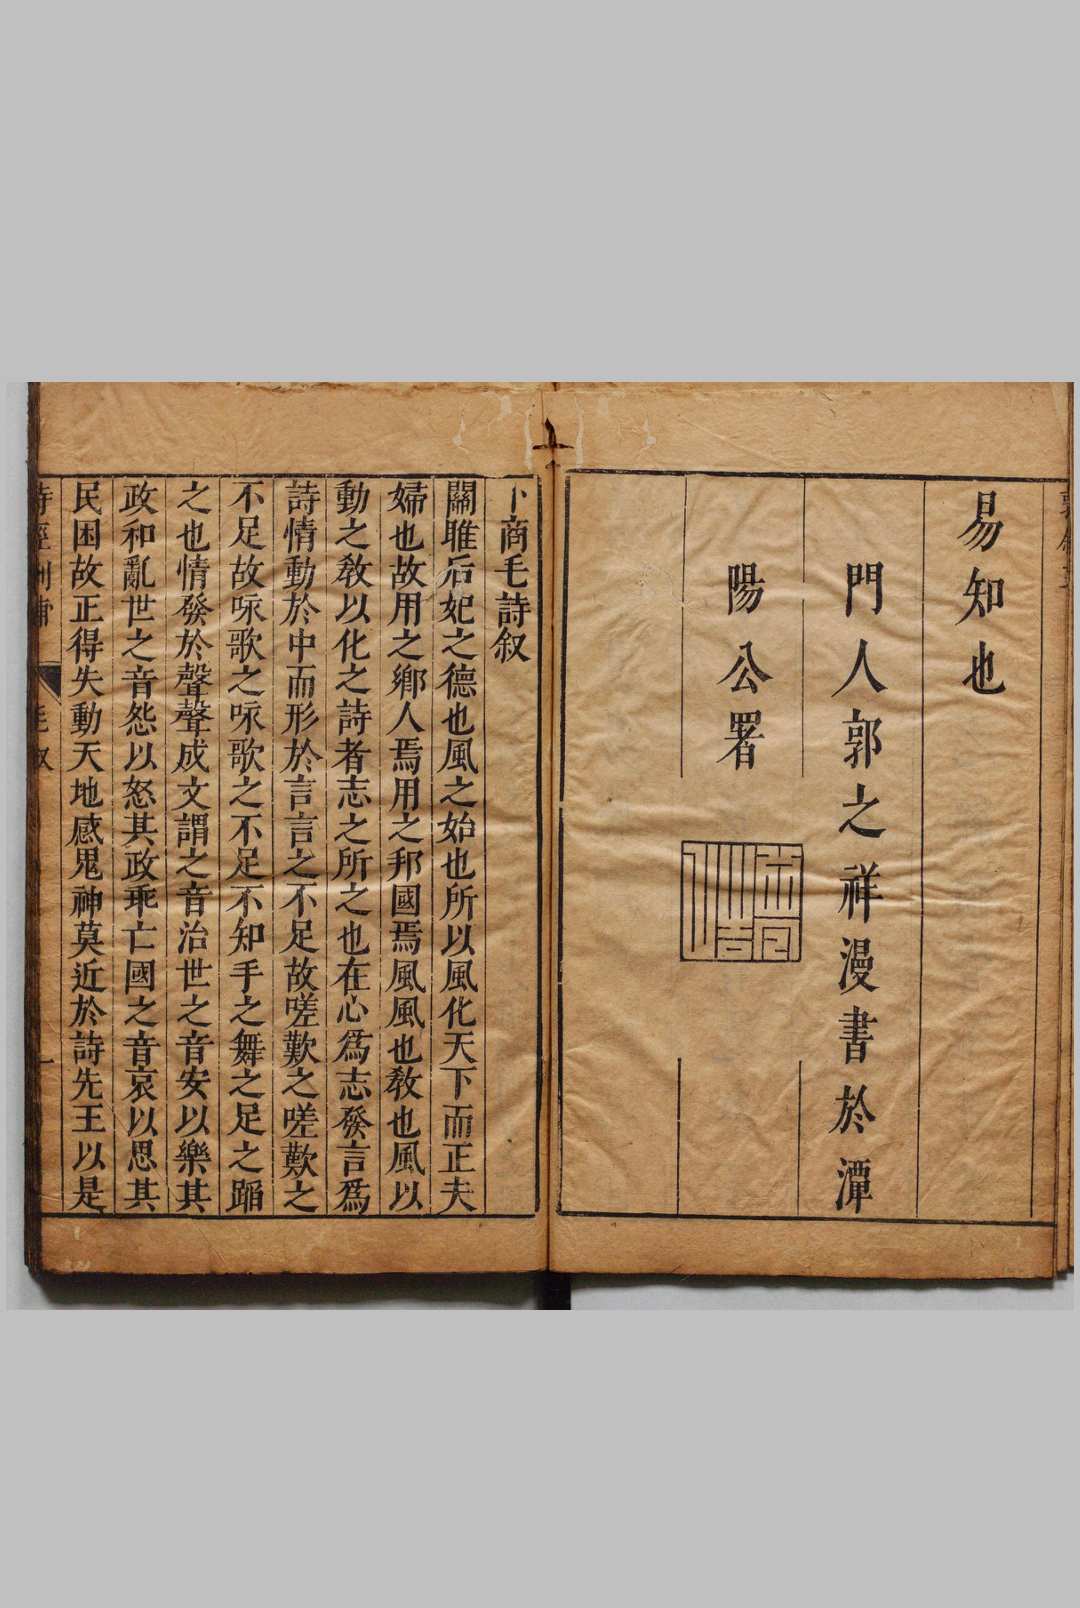 易知也
門人郭之祥漫書於潭
陽公署
卜商毛詩叙
關雎后妃之德也風之始也所以風化天下而正夫
婦也故用之鄉人焉用之邦國焉風風也教也風以
動之教以化之詩者志之所之也在心爲志發言爲
詩情動於中而形於言言之不足故嗟歎之嗟歎之
不足故咏歌之咏歌之不足不知手之舞之足之蹈
之也情發於聲聲成文謂之音治世之音安以樂其
政和亂世之音怨以怒其政乖亡國之音哀以思其
民困故正得失動天地感鬼神莫近於詩先王以是